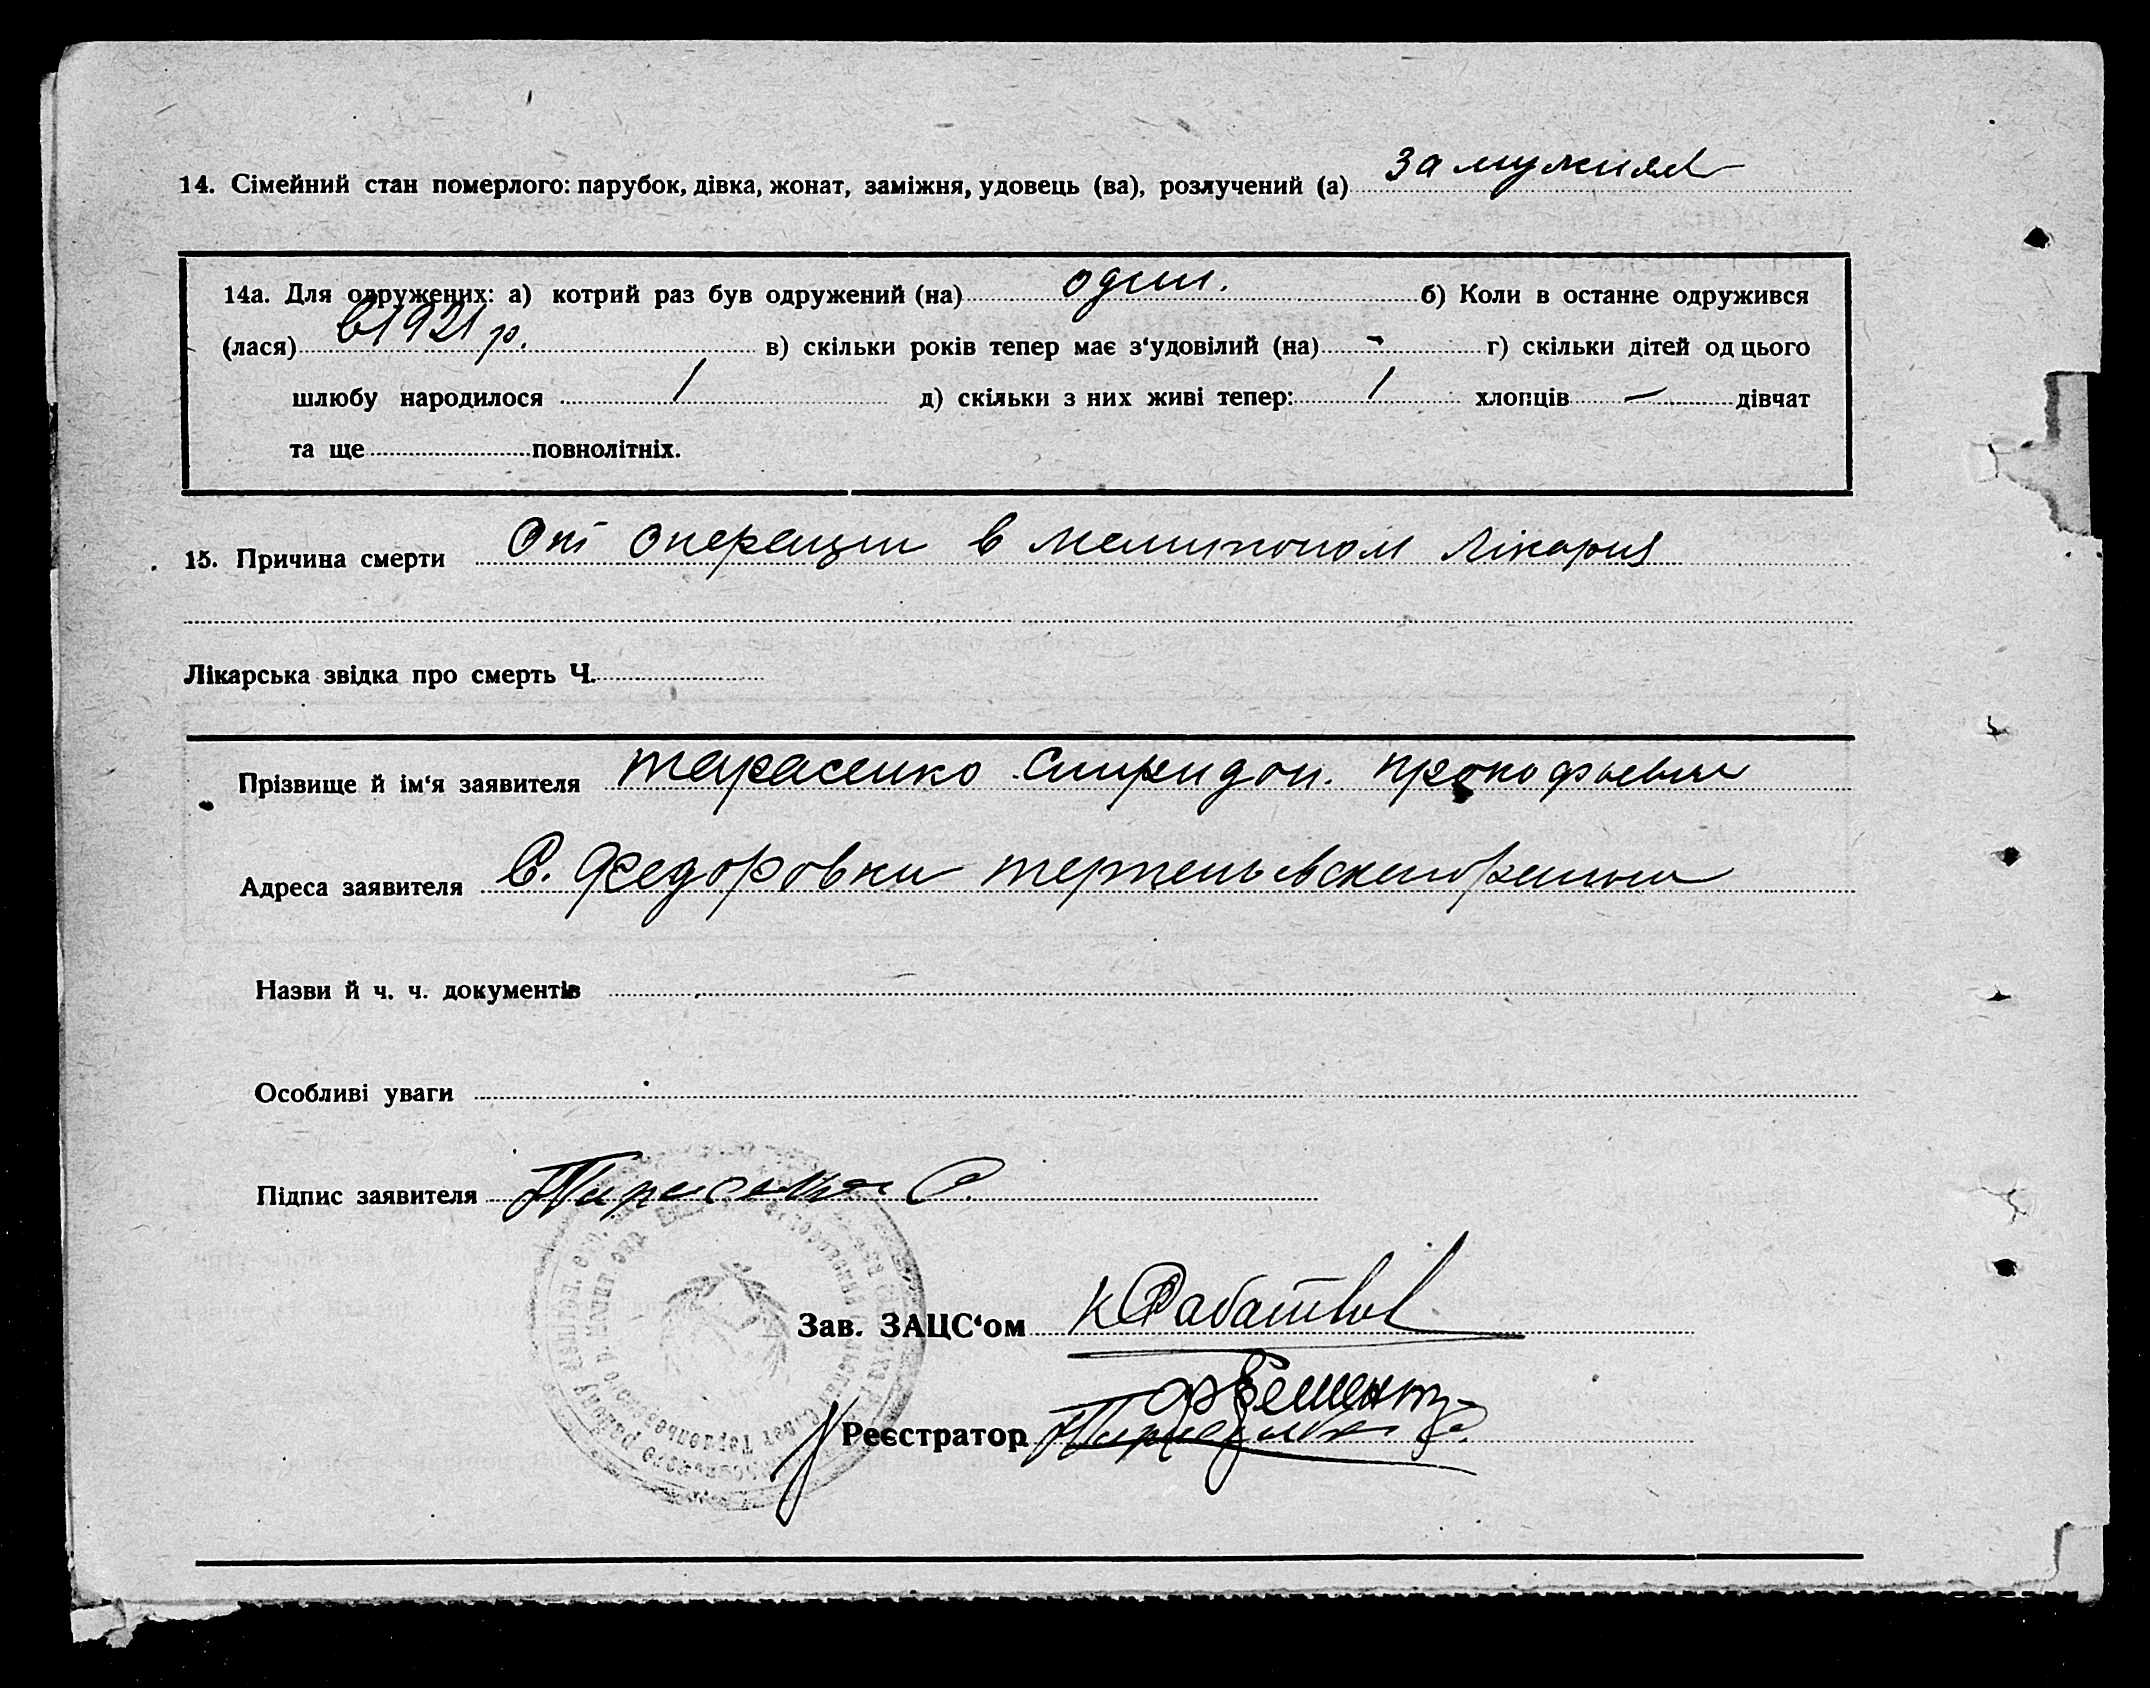 14. Сімейний стан померлого: парубок, дівка, жонат, заміжня, удовець (ва), розлучений (а) замужняя
14а. Для одружених: а) котрий раз був одружений (на) один. б) Коли в останне одружився
(лася) в 1921 р. в) скільки років тепер має з‘удовілий (на) - г) скільки дітей од цього
шлюбу народилося 1 д) скільки з них живі тепер: 1 хлопців — дівчат
та ще повнолітніх.
15. Причина смерти От операции в мелитопол лікария
Лікарська звідка про смерть Ч.
Прізвище й ім‘я заявителя тарасенко Спиридон. прокофьевич
Адреса заявителя С. Федоровки
Назви й ч. ч. документів
Особливі уваги
Підпис заявителя Тарасенко С.
Зав. ЗАЦС‘ом
Реєстратор